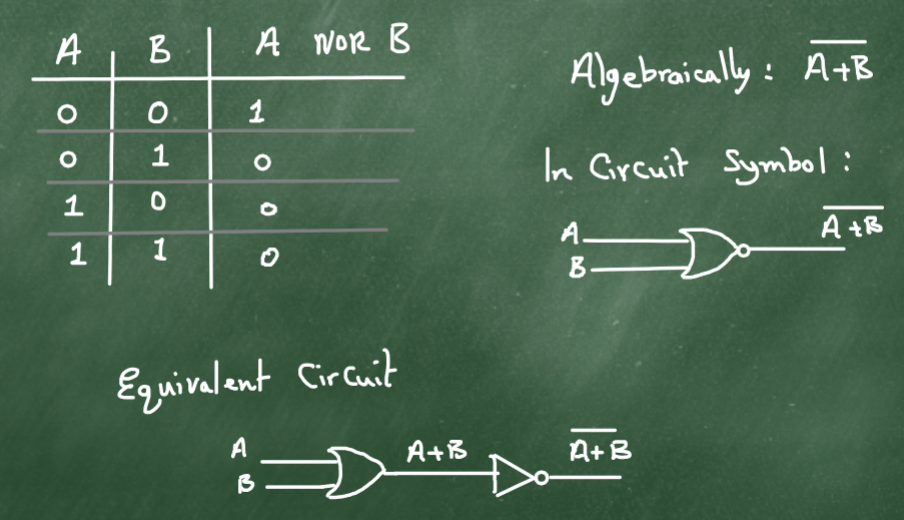 A B A NOR B
0 0 1
0 1 0
1 0 0
1 1 0
Algebraically: A̅+̅B̅
In Circuit Symbol:
A
B
A̅+̅B̅
Equivalent Circuit
A
B
A+B
A̅+̅B̅